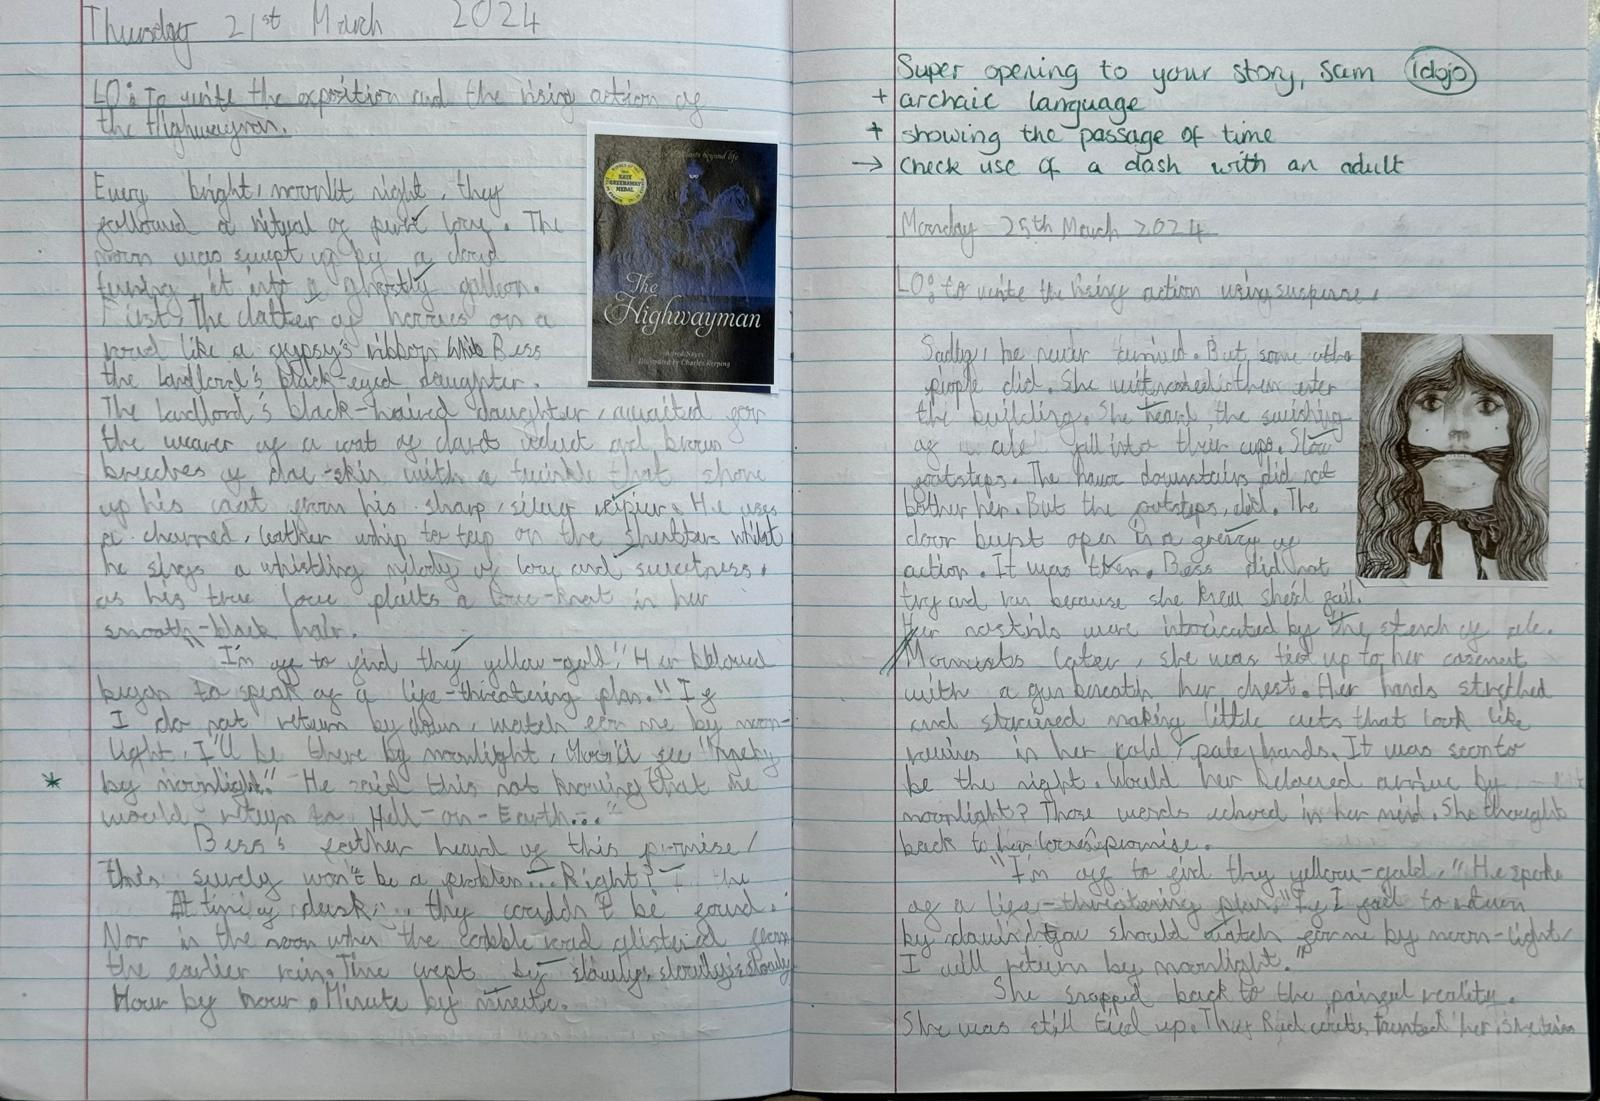 Thursday 21st March 2024
LO: To write the exposition and the rising action of
the Highwayman.
Every bright, moonlit night, they
followed a ritual of pure love. The
moon was swept up by a cloud
turning it into a ghostly galleon.
First, The clatter of horries on a
road like a gypsy's ribbon while Bess
the landlord's black-eyed daughter.
The landlord's black-haired daughter, awaited for
the weaver of a coat of claret velvet and brown
breeches of doe-skin with a twinkle that shone
up his coat from his sharp, silver He uses
a charred, leather whip to tap on the shutters whilst
he sings a whistling melody of love and sweetness.
as his true love plaits a love-knot in her
smooth-black hair.
"I'm off to find thy yellow-gold," Her beloved
began to speak of a life-threatening plan. "If
I do not return by down, watch for me by moon-
light, I'll be there by moonlight, You'll see
by moonlight." He said this not knowing that he
would return to Hell-on-Earth..."
Bess's father heard of this promise/
this surely won't be a problem... Right?
At time of dusk,... they couldn't be found.
Nor in the noon when the cobble road glistered from
the earlier rain. Time crept by slowly, slowly, slowly
Hour by hour. Minute by minute.
The Highwayman
Super opening to your story, Sam 1dojo
+ archaic language
+ showing the passage of time
→ check use of a dash with an adult
Monday 25th March 2024
LO: to write the rising action using suspense.
Sadly, he never But, some other
people did. She them enter
the building. She heard the swishing
of ale fill into their cups. Slow
footsteps. The havoc downstairs did not
bother her. But the footsteps, did. The
door burst open in a of
action. It was them. Bess did not
try and run because she knew she'd fail.
Her nostrils were intoxicated by the stench of ale.
Moments later, she was tied up to her casement
with a gun beneath her chest. Her hands
and strained making little cuts that look like
in her cold, pale hands. It was soon to
be the night. Would her beloved arrive by
moonlight? Those words echoed in her mind. She thought
back to her promise.
"I'm off to find thy yellow-gold," He spoke
of a life-threatening plan. "If I fail to return
by dawn, you should watch for me by moon-light/
I will return by moonlight."
She snapped back to the painful reality.
She was still tied up. They Red coats taunted her,